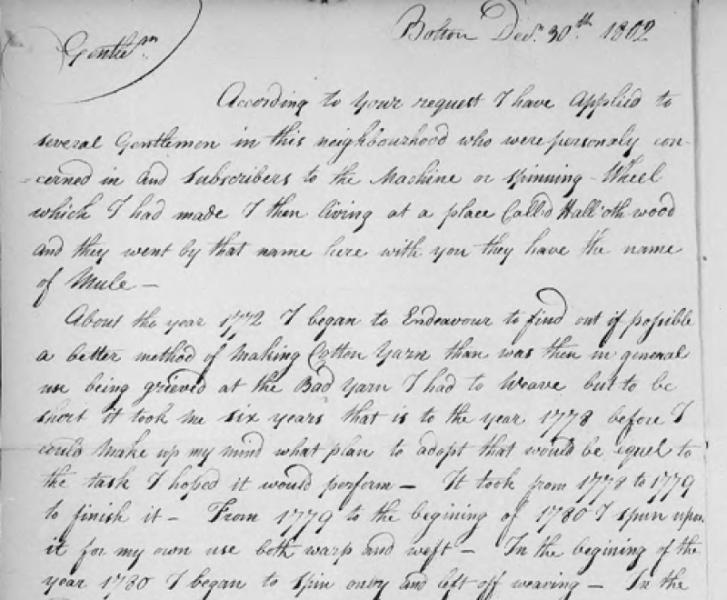 Bolton Decr. 30th. 1802
Gentlemn.
According to your request I have Applied to
several Gentlemen in this neighbourhood who were personaly con-
-cerned in and Subscribers to the Machine or Spinning-Wheel
which I had made I then living at a place Calld Hall'oth wood
and they went by that name here with you they have the name
of Mule—
About the year 1772 I began to Endeavour to find out if possible
a better method of Making Cotton Yarn than was then in general
use being grieved at the Bad Yarn I had to Weave but to be
short it took me six years that is to the year 1778 before I
could make up my mind what plan to adopt that would be equel to
the task I hoped it would perform— It took from 1778 to 1779
to finish it— From 1779 to the begining of 1780 I spun upon
it for my own use both warp and weft— In the begining of the
year 1780 I began to Spin only and left off weaving— In the